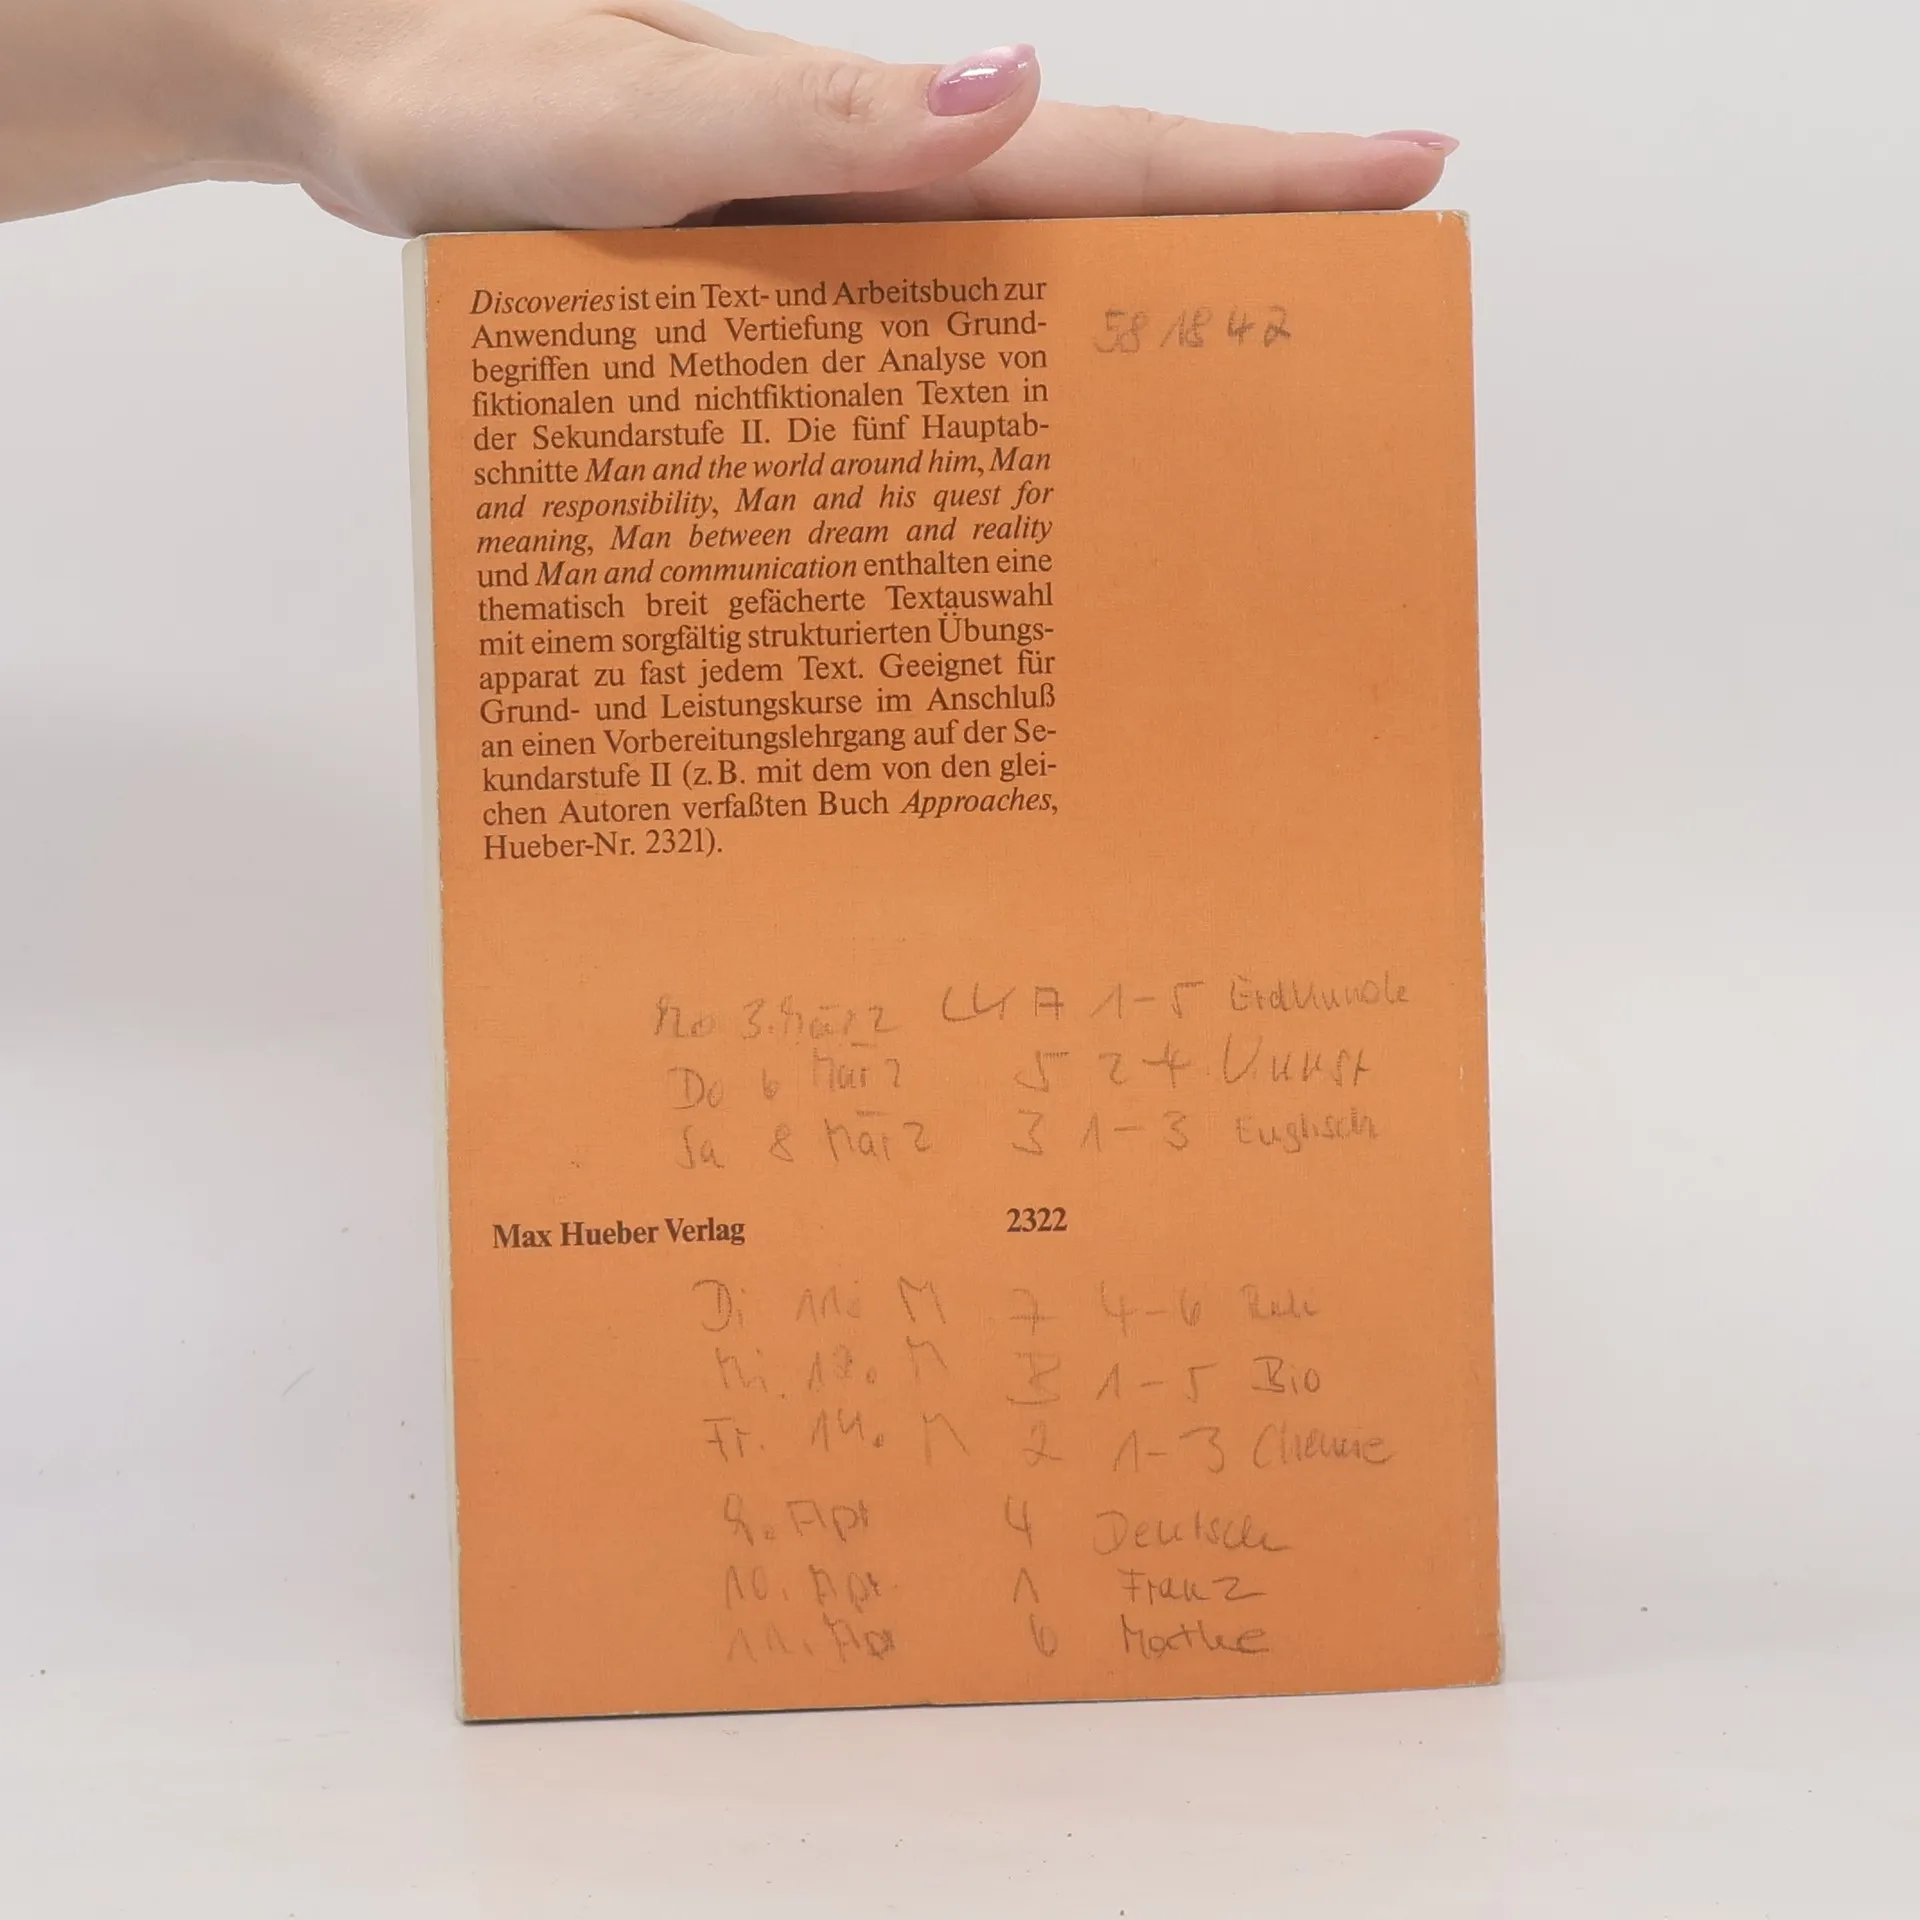 Discoveries ist ein Text- und Arbeitsbuch zur
Anwendung und Vertiefung von Grund-
begriffen und Methoden der Analyse von
fiktionalen und nichtfiktionalen Texten in
der Sekundarstufe II. Die fünf Hauptab-
schnitte Man and the world around him, Man
and responsibility, Man and his quest for
meaning, Man between dream and reality
und Man and communication enthalten eine
thematisch breit gefächerte Textauswahl
mit einem sorgfältig strukturierten Übungs-
apparat zu fast jedem Text. Geeignet für
Grund- und Leistungskurse im Anschluß
an einen Vorbereitungslehrgang auf der Se-
kundarstufe II (z. B. mit dem von den glei-
chen Autoren verfaßten Buch Approaches,
Hueber-Nr. 2321).
58 18 42
Mo 3. März 1-5 Erdkunde
Do 6 März 5 2-4 Kunst
Sa 8 März 3 1-3 Englisch
Max Hueber Verlag 2322
Di 11. M 7 4-6
Mi. 12. M 1-5 Bio
Fr. 14. M 2 1-3 Chemie
Apr 4 Deutsch
10. Apr 1 Franz
11. Apr 6 Mathe